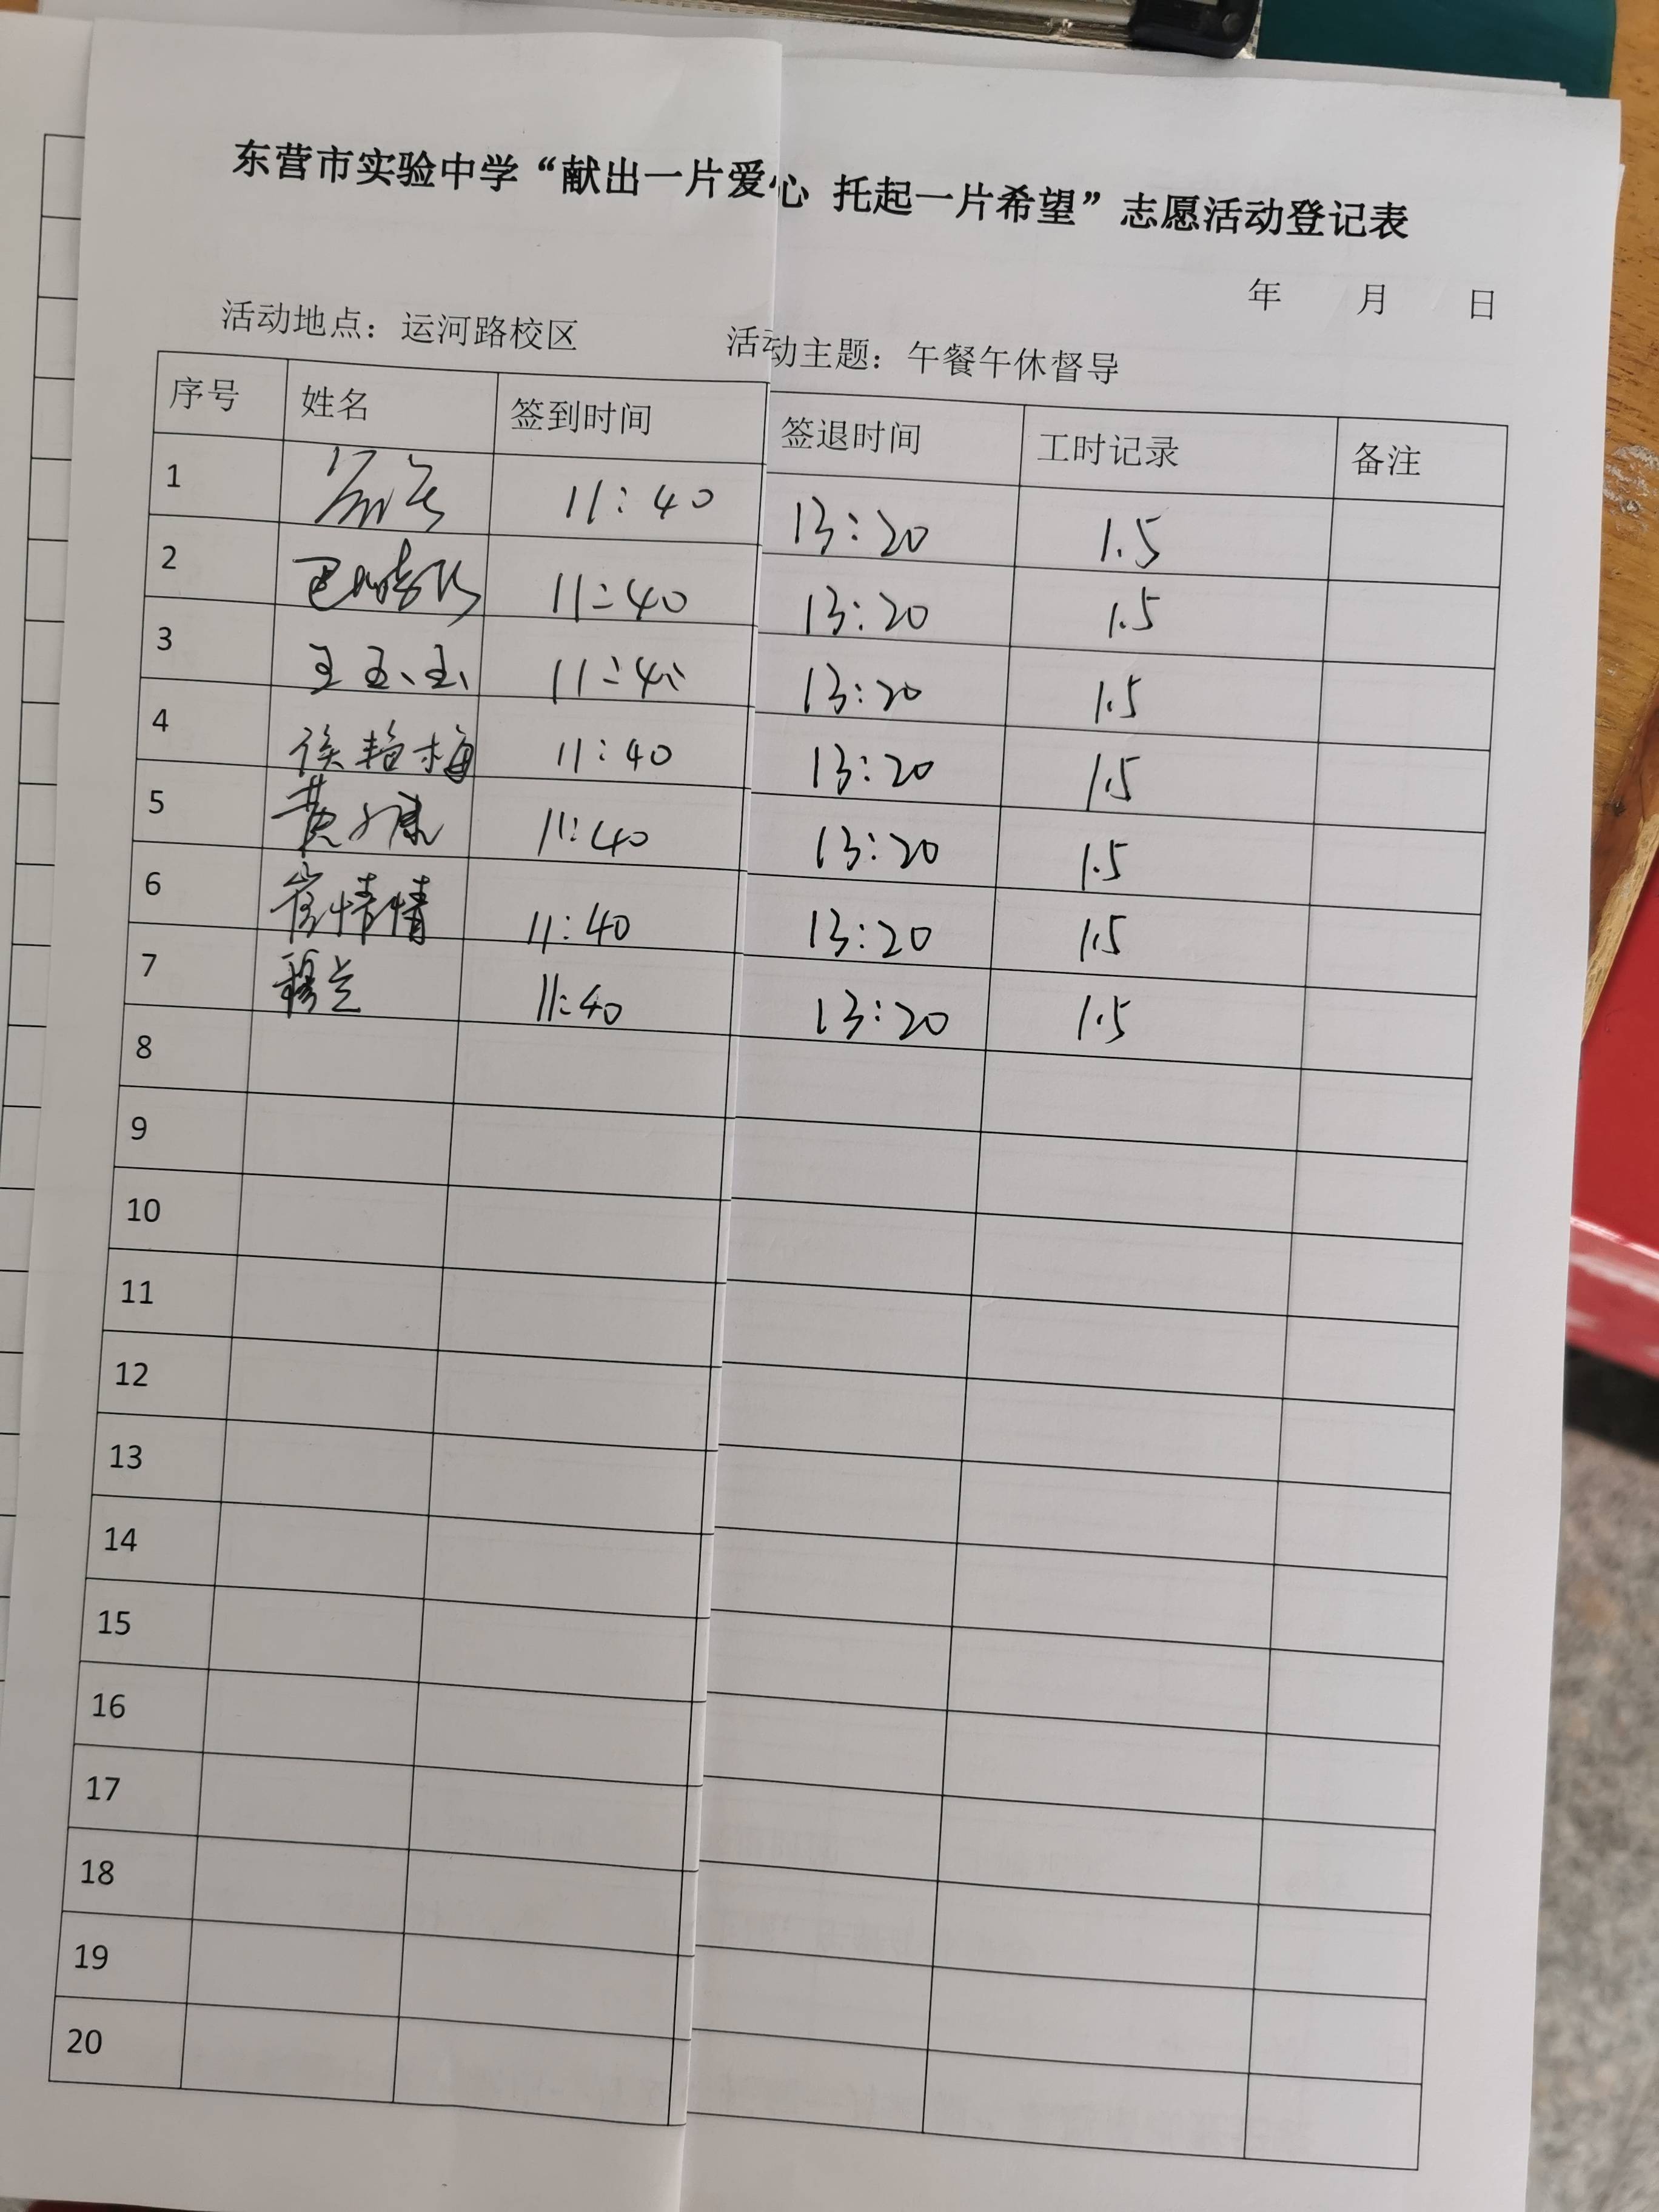 东营市实验中学“献出一片爱心 托起一片希望”志愿活动登记表
年 月 日
活动地点：运河路校区 活动主题：午餐午休督导
序号 姓名 签到时间 签退时间 工时记录 备注
1 11:40 13:20 1.5
2 11:40 13:20 1.5
3 王玉玉 11:40 13:20 1.5
4 侯艳梅 11:40 13:20 1.5
5 11:40 13:20 1.5
6 崔情情 11:40 13:20 1.5
7 11:40 13:20 1.5
8
9
10
11
12
13
14
15
16
17
18
19
20